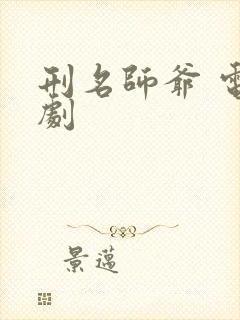 刑名師爺 電
劇
景邁